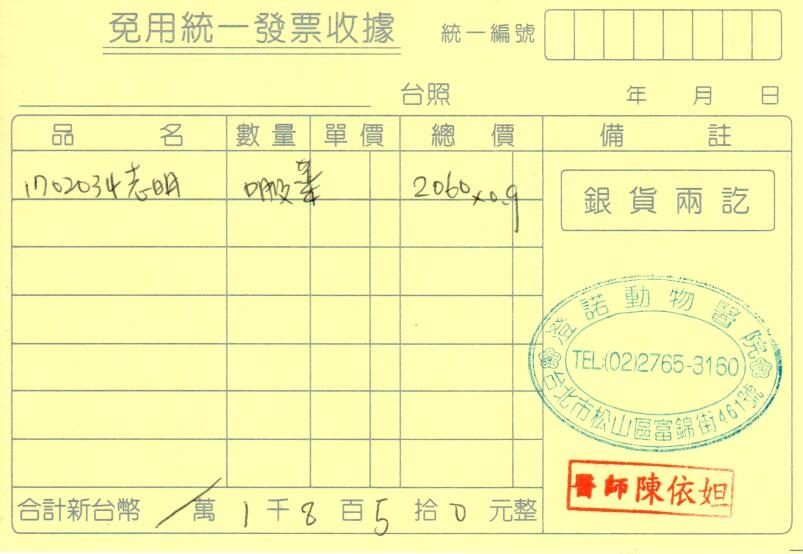 免用統一發票收據
統一編號
台照 年 月 日
品名 數量 單價 總價 備註
1702034志明 2060x0.9
銀貨兩訖
澄諾動物醫院
TEL:(02)2765-3160
台北市松山區富錦街461號
醫師陳依妲
合計新台幣 / 萬 1 千 8 百 5 拾 0 元整